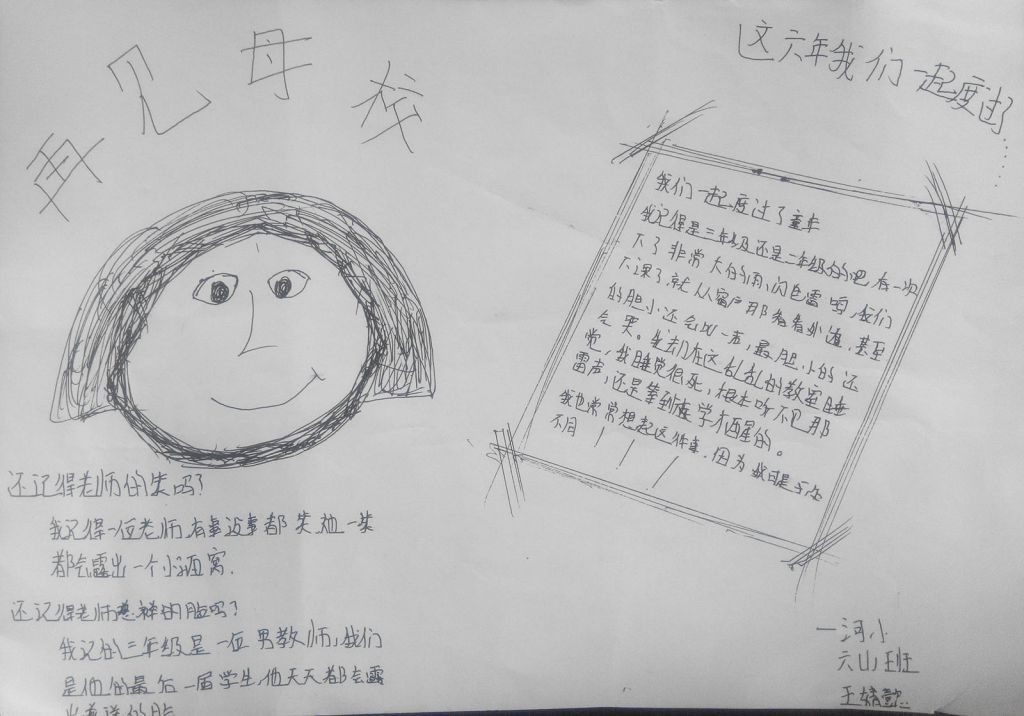 再见母校
还记得老师的笑吗?
我记得一位老师,有事没事都笑,她一笑
都会露出一个小酒窝.
还记得老师慈祥的脸吗?
我记的三年级是一位男教师,我们
是他的最后一届学生,他天天都会露
出慈祥的脸
这六年我们一起度过了……
我们一起度过了童年
我记得是三年级还是二年级的吧,有一次
下了非常大的雨,闪电雷鸣,我们
下课了,就从窗户那看看外边,甚至
的胆小还会叫一声,最胆小的还
会哭。
觉,我睡觉很死,根本听不见那
雷声,还是等到放学才醒的。
我也常常想起这件事,因为我可是与众
不同!!!
一河小
六山班